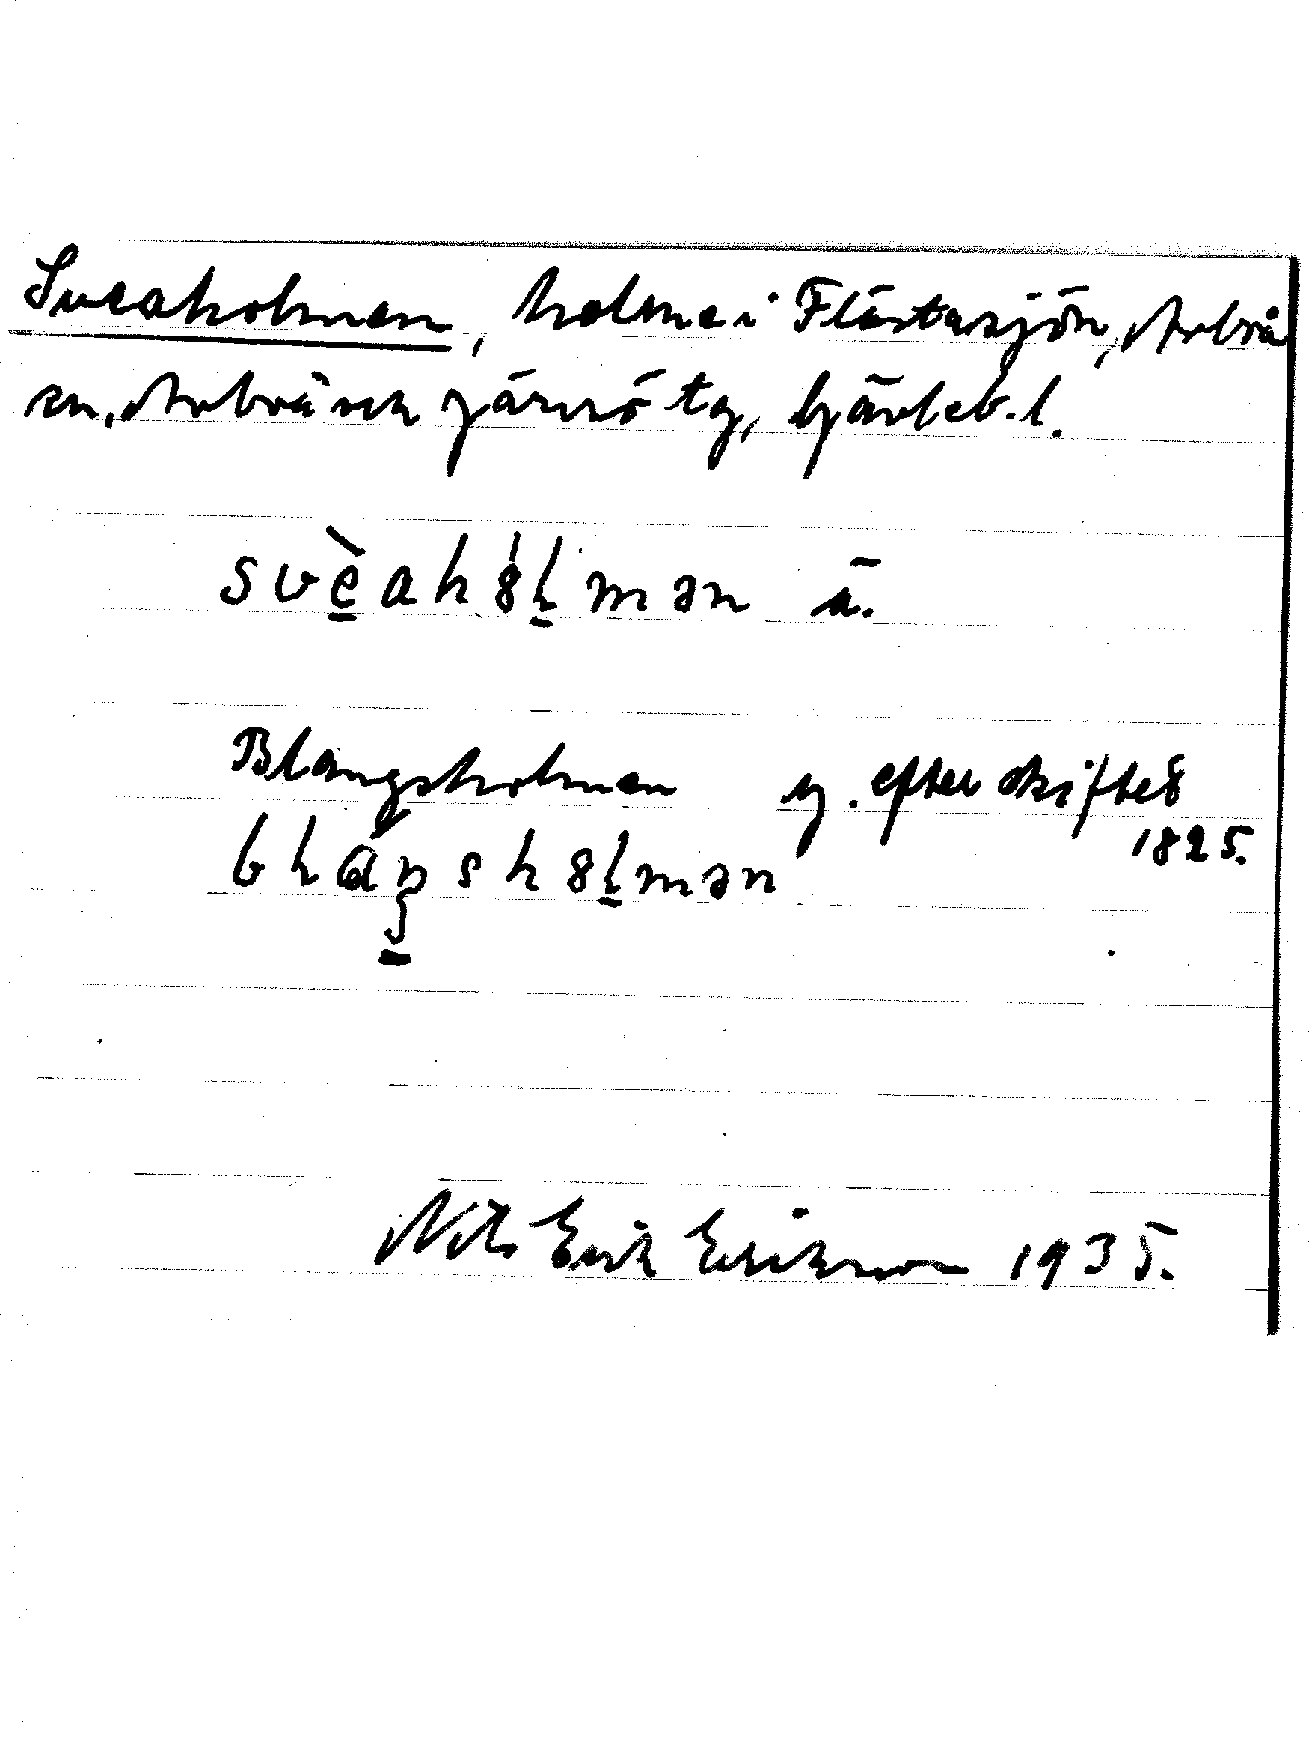 Sveaholmen, holme i Flästasjön, Arbrå
sn, Arbrå och Järvsö tg, Gävleb. l.
svèahò̵lmən ä.
Blängsholmen eg. efter skiftet
1825.
blä́ŋsholmən
Nils Erik Eriksson 1935.